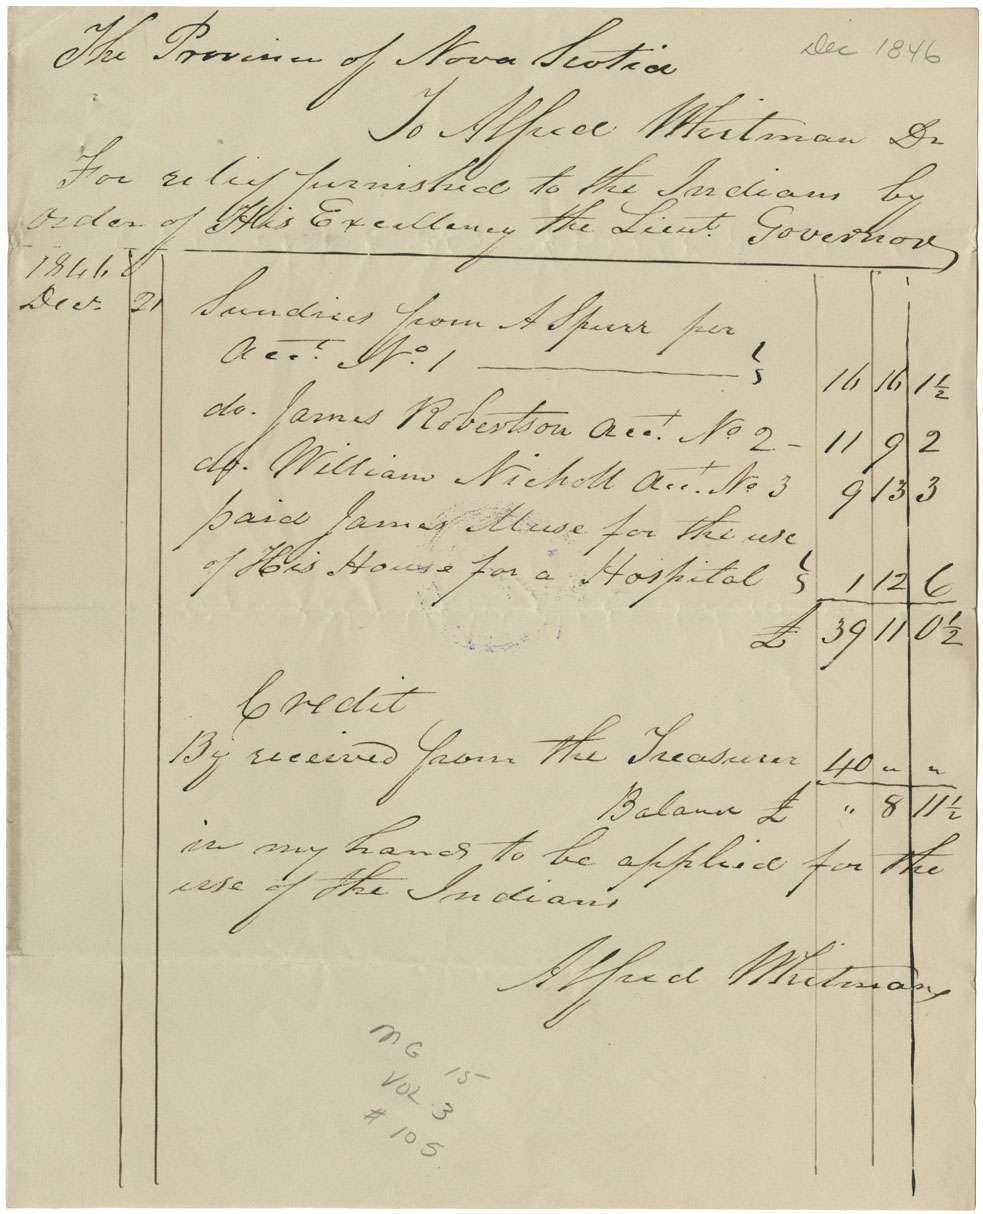 Dec 1846
The Province of Nova Scotia
To Alfred Whitman Dr
For relief furnished to the Indians by
order of His Excellency the Lieut. Governor
1846
Decr. 21 Sundries from A Spurr per
acct. No. 1 16 16 1½
do. James Robertson acct. No 2 - 11 9 2
do. William Nicholl acct. No 3 9 13 3
paid James Muse for the use
of His House for a Hospital 1 12 6
£ 39 11 0½
Credit
By received from the Treasurer 40 " "
Balance £ " 8 11½
in my hands to be applied for the
use of the Indians
Alfred Whitman
MG 15
VOL 3
# 105